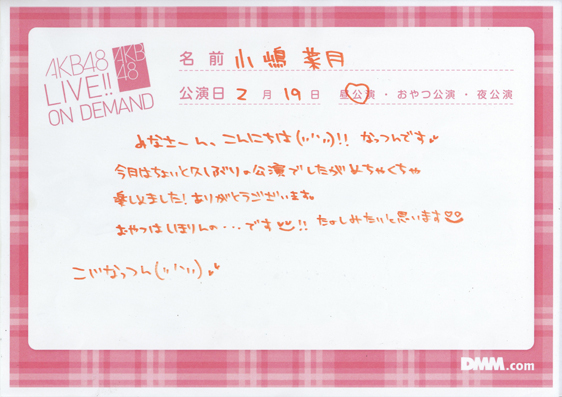 AKB48
LIVE!!
ON DEMAND
AKB
48
名前 小嶋菜月
公演日 2月19日 昼公演・おやつ公演・夜公演
みなさーん、こんにちは(,,'-',,)!! なっつんです♥
今日はちょいと久しぶりの公演でしたがめちゃくちゃ
楽しみました！ありがとうございます。
おやつはしほりんの・・・です!! たのしみたいと思います
こじなっつん(,,'-',,)♥
DMM.com